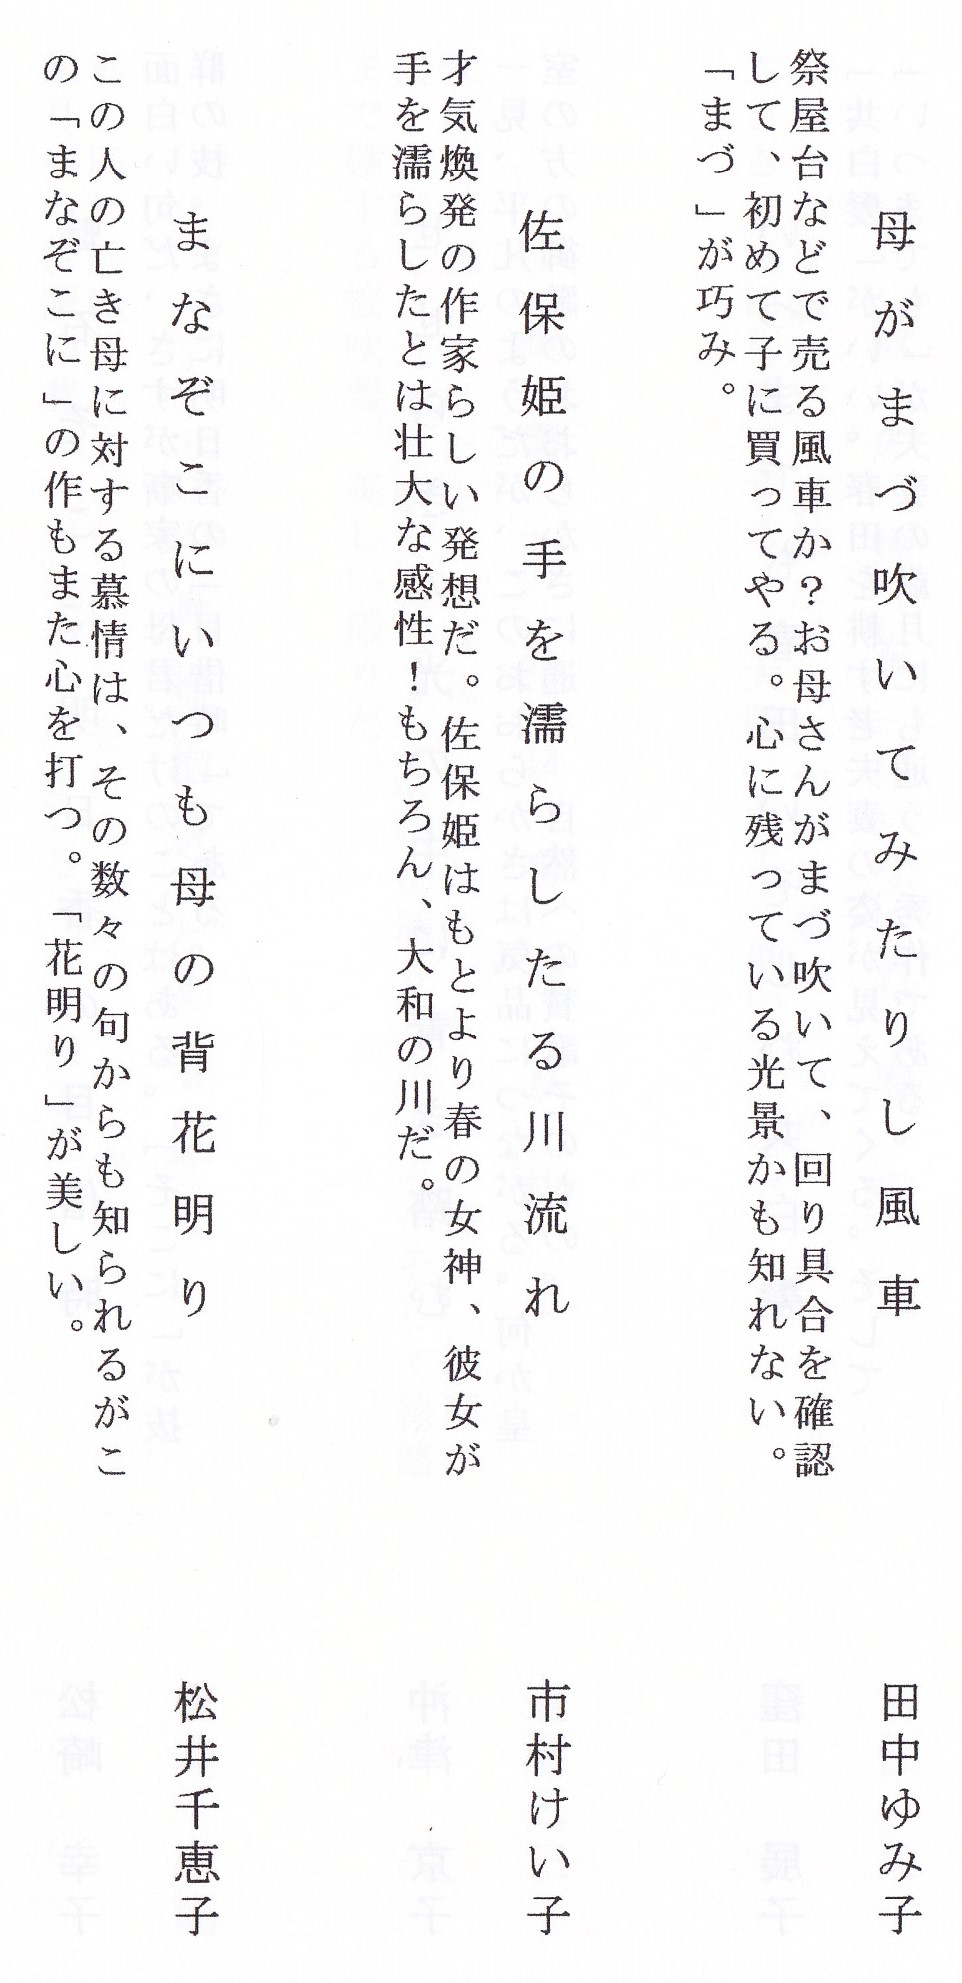 母がまづ吹いてみたりし風車
田中ゆみ子
祭屋台などで売る風車か?お母さんがまづ吹いて、回り具合を確認
して、初めて子に買ってやる。心に残っている光景かも知れない。
「まづ」が巧み。
佐保姫の手を濡らしたる川流れ
市村けい子
才気煥発の作家らしい発想だ。佐保姫はもとより春の女神、彼女が
手を濡らしたとは壮大な感性!もちろん、大和の川だ。
まなぞこにいつも母の背花明り
松井千恵子
この人の亡き母に対する慕情は、その数々の句からも知られるがこ
の「まなぞこに」の作もまた心を打つ。「花明り」が美しい。